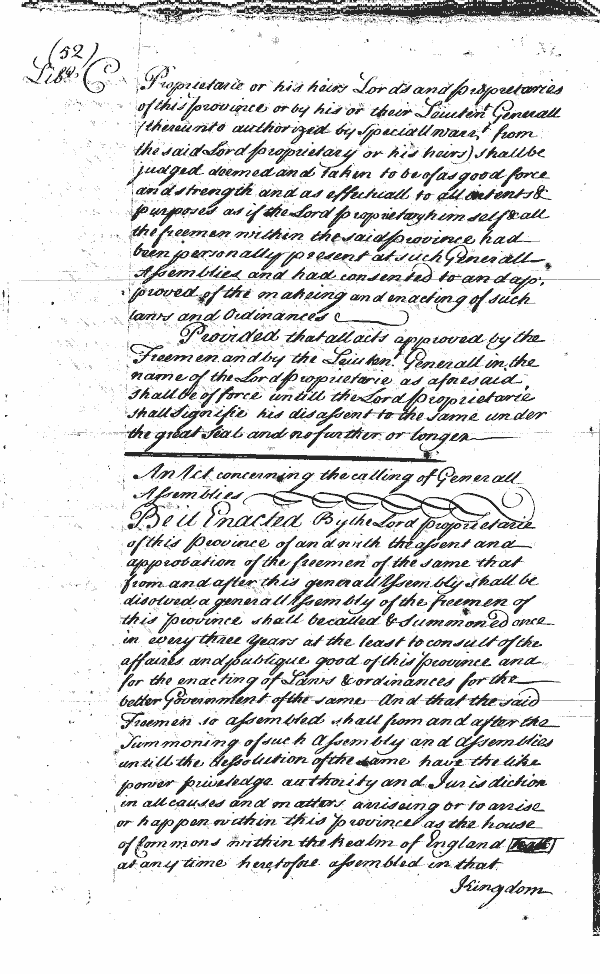 (52)
Libr. C
Proprietarie or his heirs Lords and proprietaries
of this province or by his or their Leiutent Generall
(thereunto authorized by speciall warrt from
the said Lord proprietary or his heirs) shall be
judged deemed and taken to be of as good force
and strength and as effectuall to all intents &
purposes as if the Lord proprietary himself & all
the freemen within the said province had
been personally present at such Generall
Assemblies and had consented to and ap,
proved of the makeing and enacting of such
laws and Ordinances
Provided that all acts approved by the
Freemen and by the Leiutent Generall in the
name of the Lord Proprietarie as aforesaid
shall be of force untill the Lord Proprietarie
shall signifie his disassent to the same under
the great Seal and no further or longer
An Act concerning the calling of Generall
Assemblies
Be it Enacted By the Lord proprietarie
of this Province of and with the assent and
approbation of the freemen of the same that
from and after this generall Assembly shall be
disolved a generall Assembly of the freemen of
this province shall be called & Summoned once
in every three years at the least to consult of the
affaires and publique good of this province and
for the enacting of Laws & ordinances for the
better Government of the same And that the said
Freemen so assembled shall from and after the
Summoning of such Assembly and Assemblies
untill the dessolution of the same have the like
power priveledge authority and Jurisdiction
in all causes and matters ariseing or to arrise
or happen within this province as the house
of Commons within the Realm of England
at any time heretofore assembled in that
Kingdom